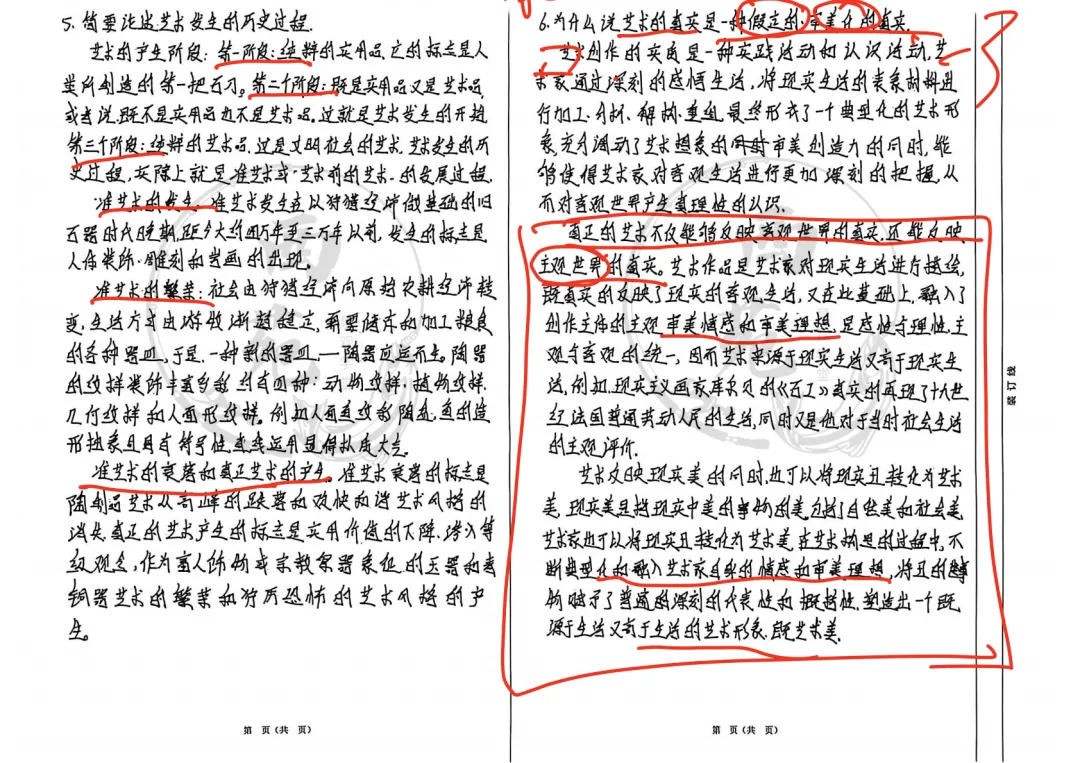 5. 简要论述艺术发生的历史过程.
艺术的产生阶段:第一阶段:纯粹的实用品,它的标志是人
类所创造的第一把石刀。第二个阶段:既是实用品又是艺术品,
或者说既不是实用品也不是艺术品。这就是艺术发生的开端
第三个阶段:纯粹的艺术品,这是文明社会的艺术.艺术发生的历
史过程,实际上就是准艺术或艺术前的艺术的发展过程.
准艺术的发生:准艺术发生在以狩猎经济做基础的旧
石器时代晚期,距今大约四万年至三万年以前,发生的标志是
人体装饰、雕刻和岩画的出现.
准艺术的繁荣:社会由狩猎经济向原始农耕经济转
变,生活方式由游牧渐趋稳定,需要储存和加工粮食
的各种器皿,于是,一种新的器皿,一陶器应运而生。陶器
的纹样装饰丰富多彩,约有四种:动物纹样,植物纹样,
几何纹样和人面形纹样。例如人面鱼纹彩陶盆,鱼的造
形抽象且具有符号性,线运用显得朴质大气。
准艺术的衰落和真正艺术的产生。准艺术衰落的标志是
陶制品艺术从高峰的跌落和欢快和谐艺术风格的
消失.真正的艺术产生的标志是实用价值的下降,渗入等
级观念,作为富人饰物或宗教祭器象征的玉器和青
铜器艺术的繁荣和狞厉恐怖的艺术风格的产
生。
第 页(共 页)
6.为什么说艺术的真实是一种假定的、审美化的真实.
艺术创作的实质是一种实践活动和认识活动,艺
术家通过深刻的感悟生活,将现实生活的表象材料进
行加工、分析、解构、重组,最终形成了一个典型化的艺术形
象,充分调动了艺术想象的同时审美创造力的同时,能
够使得艺术家对客观生活进行更加深刻的把握,从
而对客观世界产生真理性的认识.
真正的艺术不仅能够反映客观世界的真实,还能反映
主观世界的真实。艺术作品是艺术家对现实生活进行描绘,
既真实的反映了现实的客观生活,又在此基础上,融入了
创作主体的主观审美情感和审美理想,是感性与理性,主
观与客观的统一,因而艺术来源于现实生活又高于现实生
活,例如,现实主义画家库尔贝的《石工》真实的再现了十九世
纪法国普通劳动人民的生活,同时又是他对于当时社会生活
的主观评价.
艺术反映现实美的同时,也可以将现实丑转化为艺术
美.现实美是指现实中美的事物的美,包括了自然美和社会美.
艺术家也可以将现实丑转化为艺术美,在艺术构思的过程中,不
断典型化和融入艺术家自身的情感和审美理想,将丑的事
物赋予了普遍的深刻的代表性和概括性,塑造出一个既
源于生活又高于生活的艺术形象,既艺术美.
第 页(共 页)
装订线